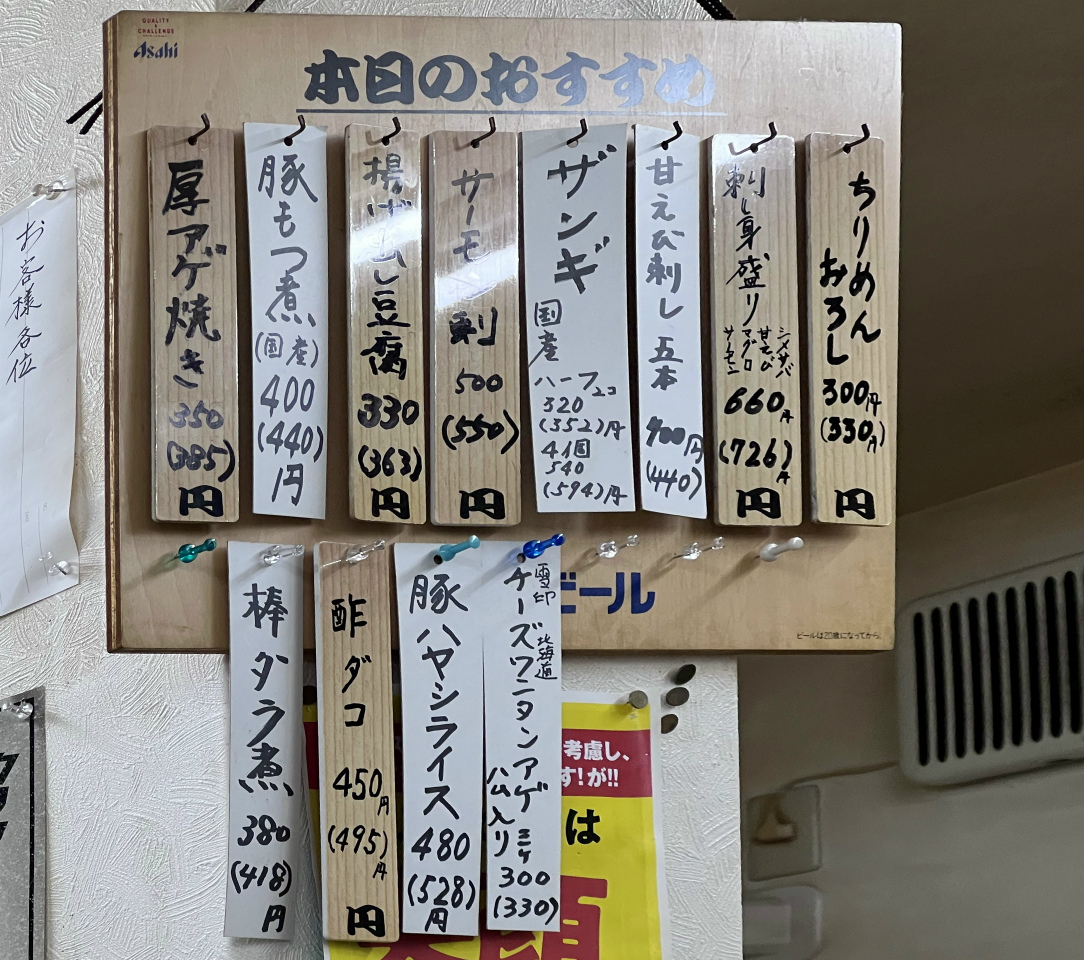 QUALITY
&
CHALLENGE
Asahi
本日のおすすめ
ちりめん
おろし
300円
(330円)
円
刺し身盛り
シメサバ
甘えび
マグロ
サーモン
660円
(726)円
円
甘えび刺し 五本
400円
(440)
ザンギ
国産
ハーフ2コ
320
(352)円
4個
540
(594)円
サーモン刺
500
(550)
円
揚げ出し豆腐
330
(363)
円
豚もつ煮
(国産)
400
(440)
円
厚アゲ焼き
350
(385)
円
ビール
ビールは20歳になってから。
雪印
北海道
チーズワンタンアゲ
ハム入り
300
(330)
豚ハヤシライス
480
(528)
円
酢ダコ
450円
(495)円
円
棒ダラ煮
380
(418)
円
お客様各位
考慮し、
す!が!!
は